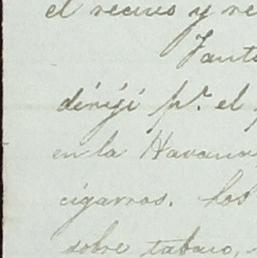 el recivo y re
Tant
dirigí pr. el
en la Havana
cigarros. Los
sobre tabaco,